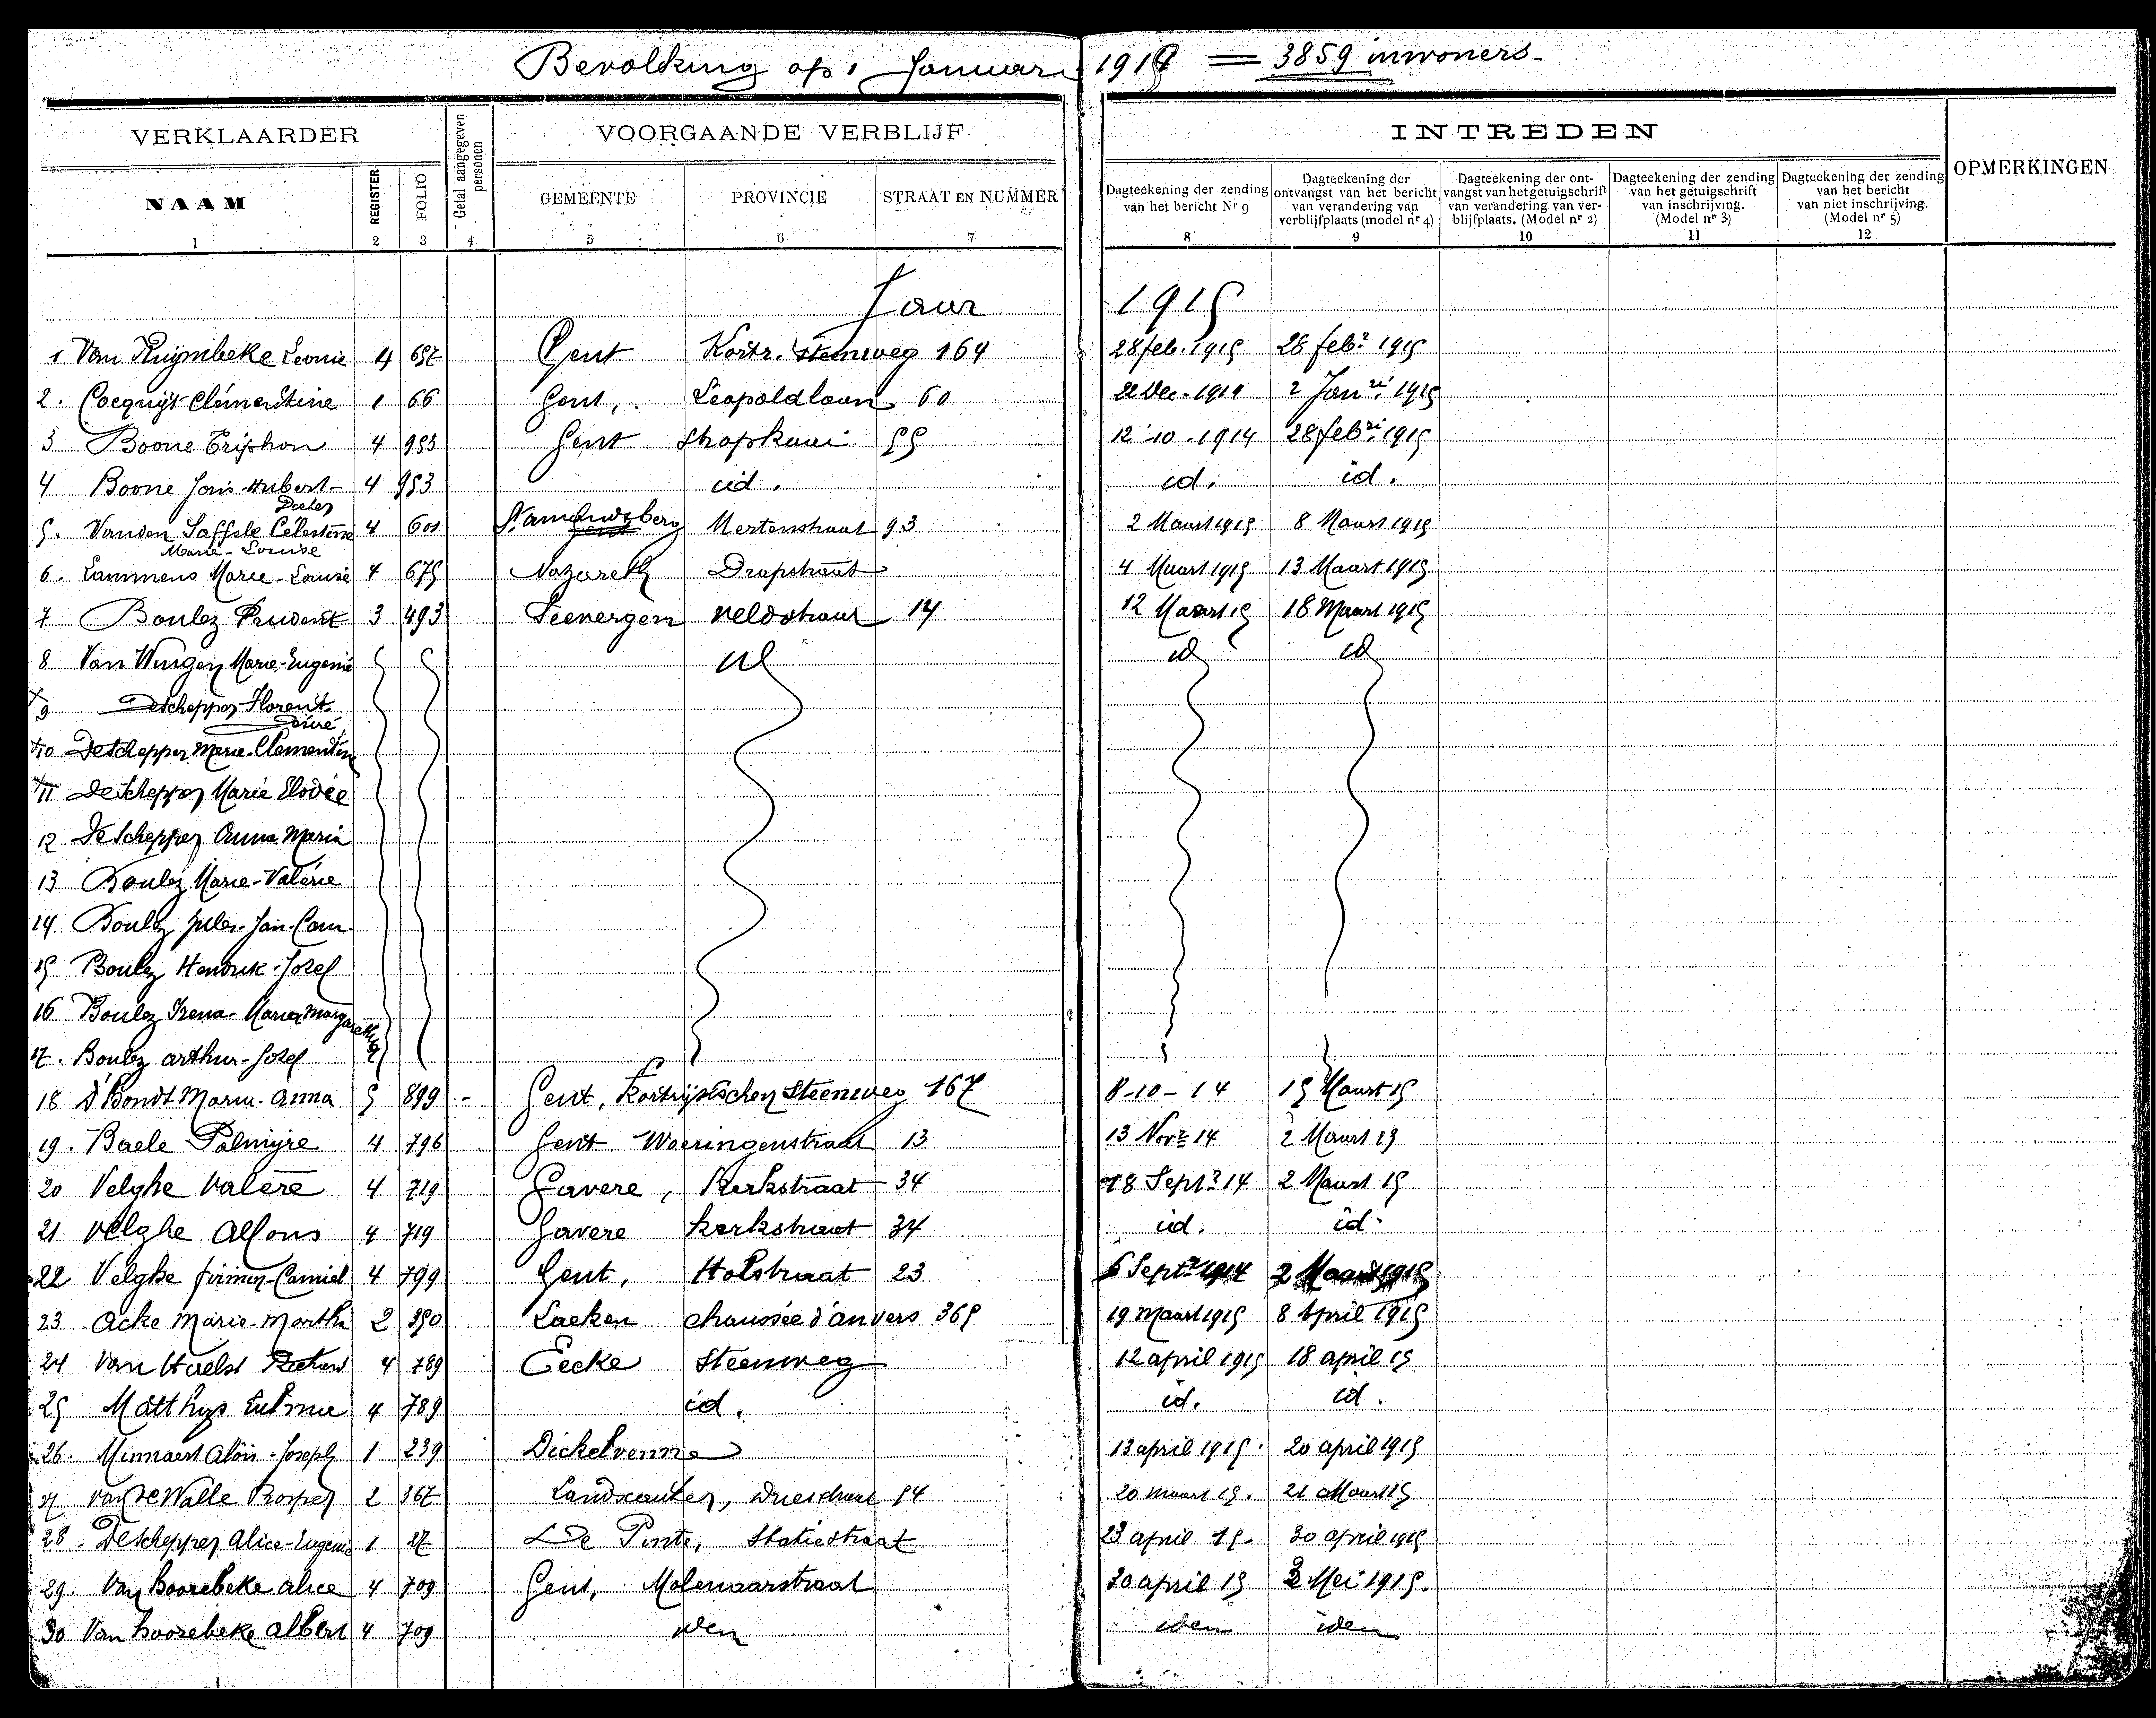 Bevolking op 1 Januari 191 = 3859 inwoners.
VERKLAARDER Getal aangegeven personen VOORGAANDE VERBLIJF INTREDEN OPMERKINGEN
NAAM REGISTER FOLIO GEMEENTE PROVINCIE STRAAT EN NUMMER
Dagteekening der zending van het bericht Nr 9
Dagteekening der ontvangst van het bericht van verandering van verblijfplaats (model nr 4)
Dagteekening der ontvangst van het getuigschrift van verandering van verblijfplaats. (Model nr 2)
Dagteekening der zending van het getuigschrift van inschrijving. (Model nr 3)
Dagteekening der zending van het bericht van niet inschrijving. (Model nr 5)
1 2 3 4 5 6 7 8 9 10 11 12
Jaar 1915
1 Van Leonie 4 657 Gent Kortr. Steenweg 164 28 feb. 1915 28 febr 1915
2. Cocquijt Clementine 1 66 Gent, Leopoldlaan 60 22 Dec. 1914 2 Janri 1915
3 Boone 4 953 Gent 55 12-10-1914 28 febri 1915
4 Boone Joris-Hubert- 4 953 id. id. id.
5. Vanden Celestine 4 601 St amandsberg Mertenstraat 93 2 Maart 1915 8 Maart 1915
Marie-Louise
6. Lammens Marie-Louise 4 675 Nazareth Dorpstraat 4 Maart 1915 13 Maart 1915
7 Boulez Prudent 3 493 Seevergem veldstraat 14 12 Maart 15 18 Maart 1915
8 Van Marie-Eugenie id id id
9 Deschepper Florent
Désiré
10 Deschepper Marie-Clementine
11 Deschepper Marie Elodée
12 Deschepper Anna Maria
13 Boulez Marie-Valérie
14 Boulez Jules-Jan-Cam
15 Boulez Hendrik-Jozef
16 Boulez Irena-Maria Margaretha
17. Boulez arthur-Jozef
18 D'Bondt Maria-Anna 5 899 - Gent, Kortrijkschen Steenweg 167 8-10-14 15 Maart 15
19. Baele Palmyre 4 796 Gent Woeringenstraat 13 13 Novr 14 2 Maart
20 Velghe Valère 4 719 Gavere, Kerkstraat 34 18 Septr 14 2 Maart 15
21 Velghe Alfons 4 719 Gavere Kerkstraat 34 id. id.
22 Velghe firmin-Camiel 4 799 Gent, Holstraat 23 6 Septr 1914 2 Maart 1915
23 Acke Marie-Martha 2 350 Laeken chaussée d'anvers 365 19 Maart 1915 8 April 1915
24 Van Haelst 4 789 Eecke Steenweg 12 april 1915 18 april 15
25 Matthys 4 789 id. id. id.
26. Alois-Joseph 1 239 Dickelvenne 13 april 1915. 20 april 1915
27 Van de Walle Prosper 2 367 Landscauter, Driesstraat 54 20 maart 15. 21 Maart 15
28. Deschepper Alice-Eugenie 1 27 De Pinte, Statiestraat 23 april 15. 30 april 1915
29. Van hoorebeke alice 4 709 Gent, Molenaarstraat 30 april 15 2 Mei 1915.
30 Van hoorebeke albert 4 709 idem idem idem